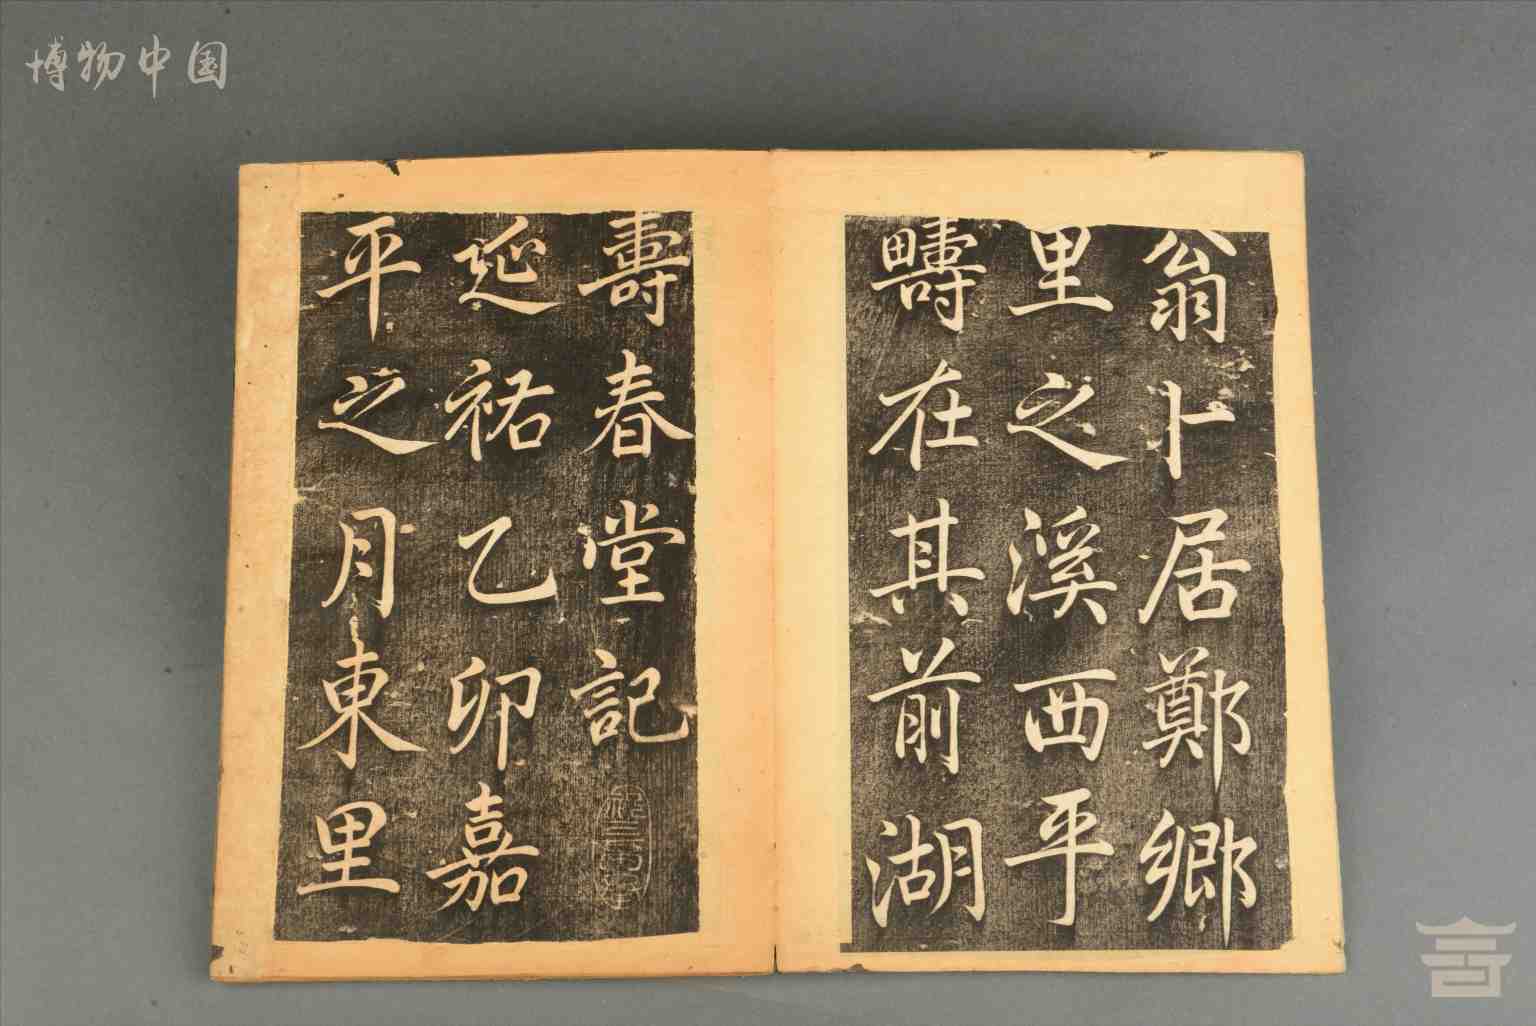 博物中国
翁卜居鄭鄉
里之溪西平
疇在其前湖
壽春堂記
延祐乙卯嘉
平之月東里